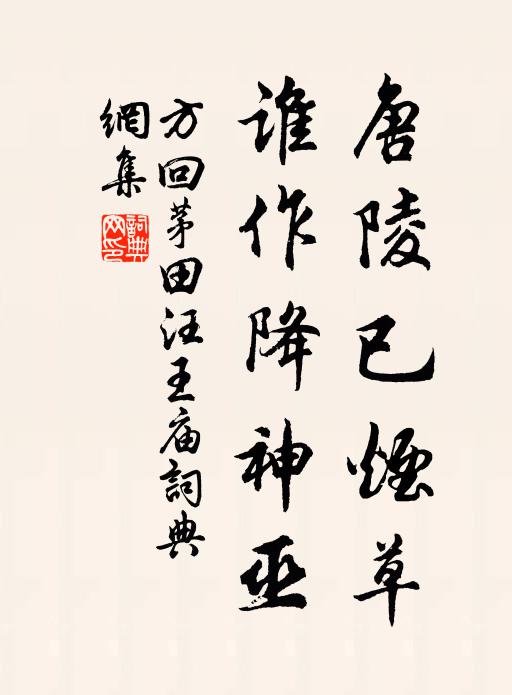 唐陵已煙草
谁作降神巫
方回茅田汪王庙詞典
網集
詞典
网印